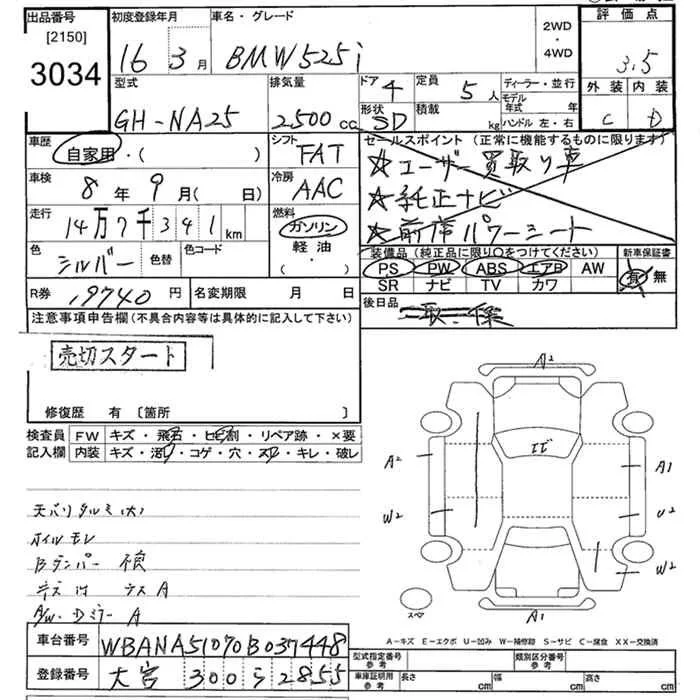 出品番号 初度登録年月 車名・グレード 2WD・4WD 評価点
[2150]
3034 16 3月 BMW525i 3.5
型式 排気量 ドア 4 定員 5人 ディーラー・並行 外装 内装
モデル年式 年
GH-NA25 2500cc 形状 SD 積載 kg ハンドル 左・右 C D
車歴 自家用・( ) シフト FAT セールスポイント (正常に機能するものに限ります)
☆ユーザー買取り車
車検 8年 9月 (日) 冷房 AAC ☆純正ナビ
走行 14万7千341km 燃料 ガソリン ☆前席パワーシート
軽油
( ・ )
色 シルバー 色替 色コード 装備品 (純正品に限り○をつけてください) 新車保証書
PS PW ABS エアB AW 有・無
SR ナビ TV カワ
R券 19740円 名変期限 月 日 後日品
注意事項申告欄 (不具合内容等は具体的に記入して下さい)
売切スタート
修復歴 有 [箇所 ]
検査員 FW キズ・飛石・ヒビ割・リペア跡・×要
記入欄 内装 キズ・汚レ・コゲ・穴・スレ・キレ・破レ
天バリタルミ(大)
オイルモレ
Bダンパー 不良
A2
エビ
A2 A1
W2 U2
W2
スペ
A1
A-キズ E-エクボ U-凹み W-補修跡 S-サビ C-腐食 XX-交換済
車台番号 WBANA51070B037448 型式指定番号 参考 類別区分番号 参考
登録番号 大宮 300 ら 2855 車庫証明用 参考 長さ cm 幅 cm 高さ cm